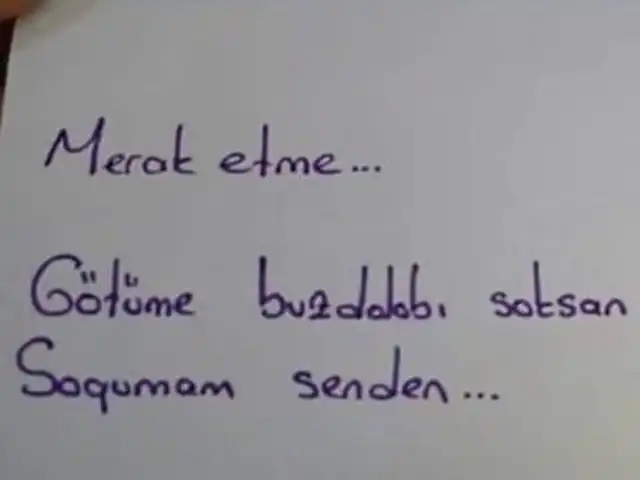 Merak etme...
Götüme buzdolabı soksan
Soğumam senden...